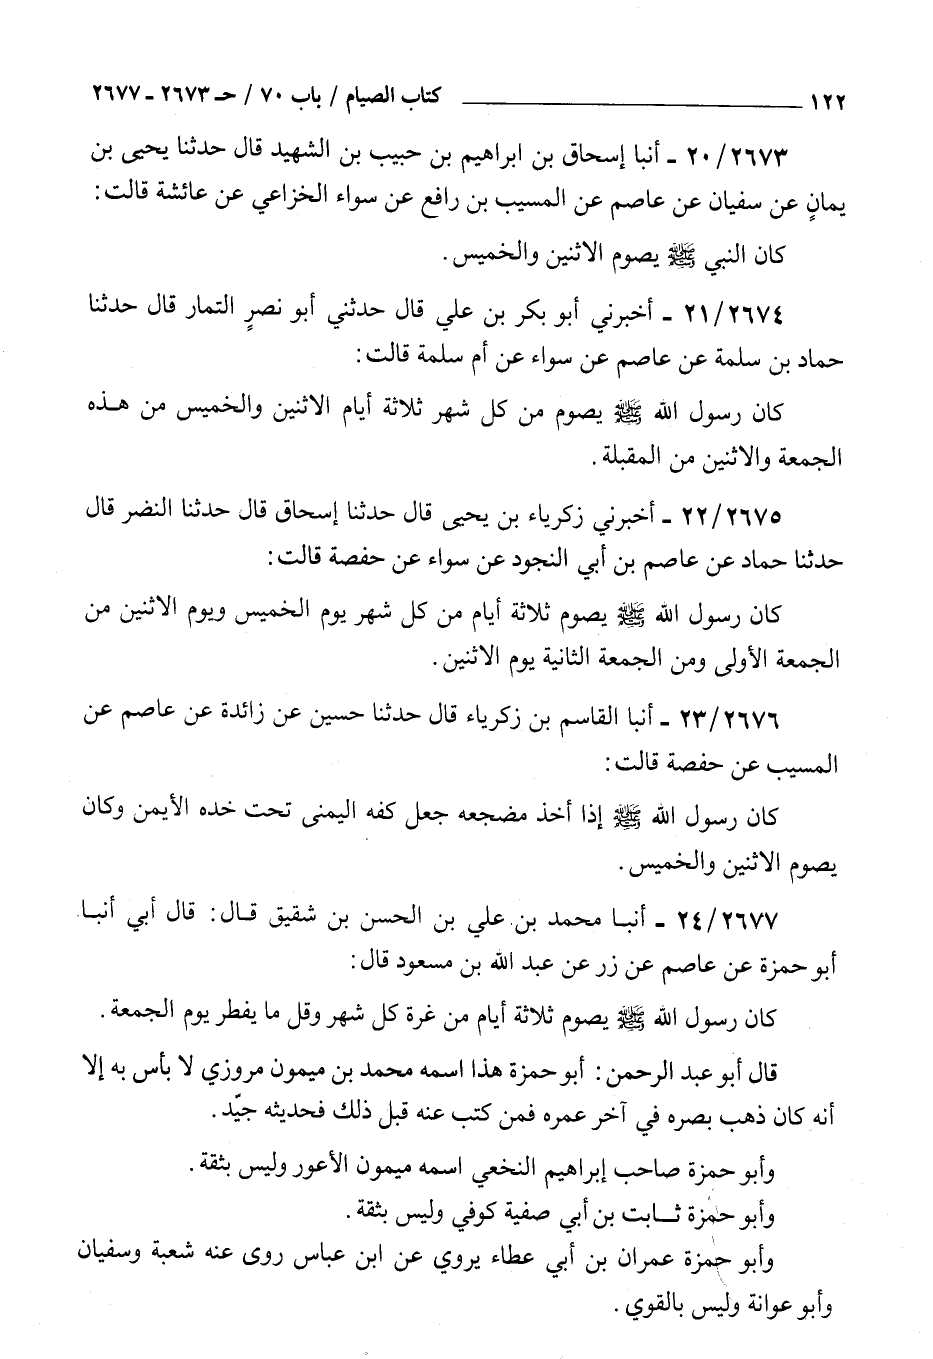 ١٢٢ كتاب الصيام / باب ٧٠ / حـ ٢٦٧٣ - ٢٦٧٧
٢٠/٢٦٧٣ - أنبا إسحاق بن ابراهيم بن حبيب بن الشهيد قال حدثنا يحيى بن
يمانٍ عن سفيان عن عاصم عن المسيب بن رافع عن سواء الخزاعي عن عائشة قالت:
كان النبي ﷺ يصوم الاثنين والخميس.
٢١/٢٦٧٤ - أخبرني أبو بكر بن علي قال حدثني أبو نصرٍ التمار قال حدثنا
حماد بن سلمة عن عاصم عن سواء عن أم سلمة قالت:
كان رسول الله ﷺ يصوم من كل شهر ثلاثة أيام الاثنين والخميس من هذه
الجمعة والاثنين من المقبلة.
٢٢/٢٦٧٥ - أخبرني زكرياء بن يحيى قال حدثنا إسحاق قال حدثنا النضر قال
حدثنا حماد عن عاصم بن أبي النجود عن سواء عن حفصة قالت:
كان رسول الله ﷺ يصوم ثلاثة أيام من كل شهر يوم الخميس ويوم الاثنين من
الجمعة الأولى ومن الجمعة الثانية يوم الاثنين.
٢٣/٢٦٧٦ - أنبا القاسم بن زكرياء قال حدثنا حسين عن زائدة عن عاصم عن
المسيب عن حفصة قالت:
كان رسول الله ﷺ إذا أخذ مضجعه جعل كفه اليمنى تحت خده الأيمن وكان
يصوم الاثنين والخميس.
٢٤/٢٦٧٧ - أنبا محمد بن علي بن الحسن بن شقيق قال: قال أبي أنبا
أبو حمزة عن عاصم عن زر عن عبد الله بن مسعود قال:
كان رسول الله ﷺ يصوم ثلاثة أيام من غرة كل شهر وقل ما يفطر يوم الجمعة.
قال أبو عبد الرحمن: أبو حمزة هذا اسمه محمد بن ميمون مروزي لا بأس به إلا
أنه كان ذهب بصره في آخر عمره فمن كتب عنه قبل ذلك فحديثه جيّد.
وأبو حمزة صاحب إبراهيم النخعي اسمه ميمون الأعور وليس بثقة.
وأبو حمزة ثابت بن أبي صفية كوفي وليس بثقة.
وأبو حمزة عمران بن أبي عطاء يروي عن ابن عباس روى عنه شعبة وسفيان
وأبو عوانة وليس بالقوي.